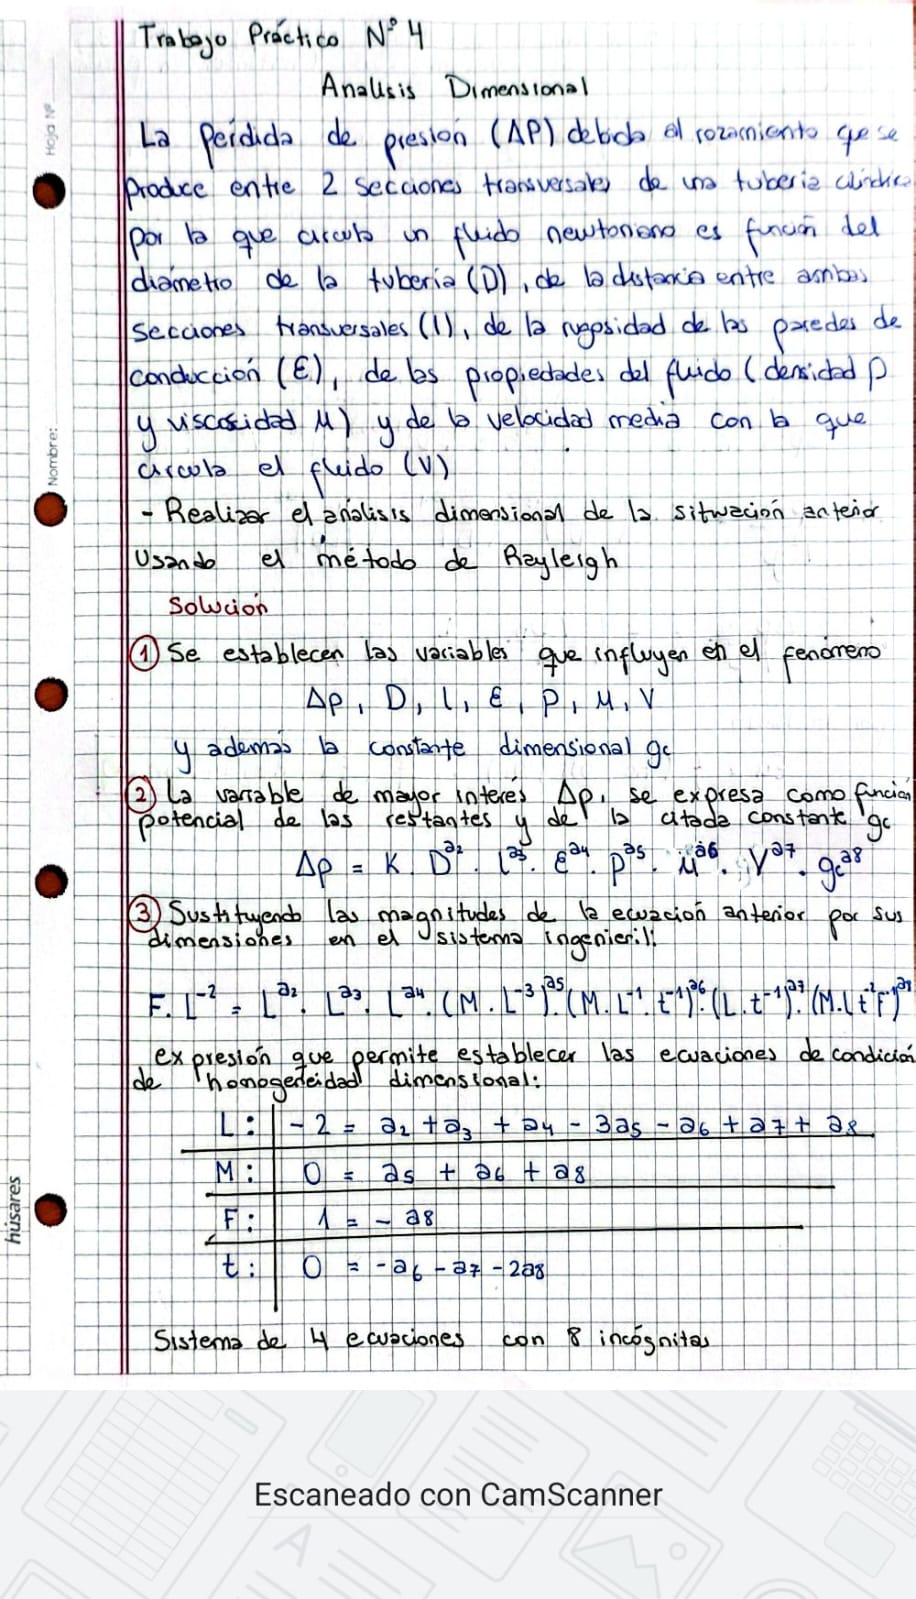 Trabajo Práctico Nº 4
Analisis Dimensional
La perdida de presion (ΔP) debido al rozamiento qe se
produce entre 2 secciones transversales de una tuberia cilindrica
por la que circula un fluido newtoniano es función del
diametro de la tuberia (D), de la distancia entre ambas
secciones transversales (l), de la rugosidad de las paredes de
conducción (ε), de las propiedades del fluido (densidad ρ
y viscosidad μ) y de la velocidad media con la que
circula el fluido (V)
- Realizar el análisis dimensional de la situación anterior
Usando el método de Rayleigh
Solución
① Se establecen las variables que influyen en el fenómeno
Δp, D, l, ε, ρ, μ, V
y además la constante dimensional gc
② La variable de mayor interés Δp, se expresa como función
potencial de las restantes y de la citada constante gc
Δp = K. D^a2. l^a3. ε^a4. ρ^a5. μ^a6. V^a7. gc^a8
③ Sustituyendo las magnitudes de la ecuación anterior por sus
dimensiones en el sistema ingenieril:
F. L^-2 = L^a2. L^a3. L^a4. (M. L^-3)^a5. (M. L^-1. t^-1)^a6. (L. t^-1)^a7. (M. L t^-2 F^-1)^a8
expresión que permite establecer las ecuaciones de condición
de homogeneidad dimensional:
L: -2 = a2 + a3 + a4 - 3a5 - a6 + a7 + a8
M: 0 = a5 + a6 + a8
F: 1 = - a8
t: 0 = -a6 - a7 - 2a8
Sistema de 4 ecuaciones con 8 incógnitas
Hoja Nº
Nombre:
húsares
Escaneado con CamScanner